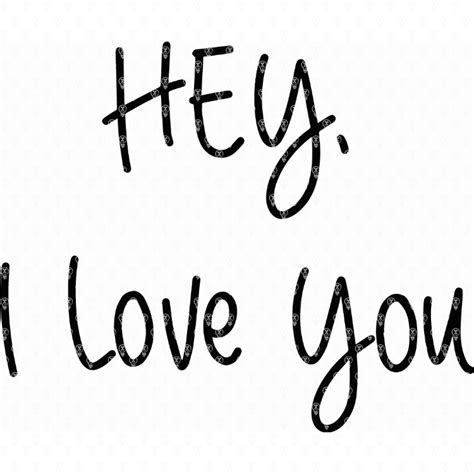 HEY,
I Love You